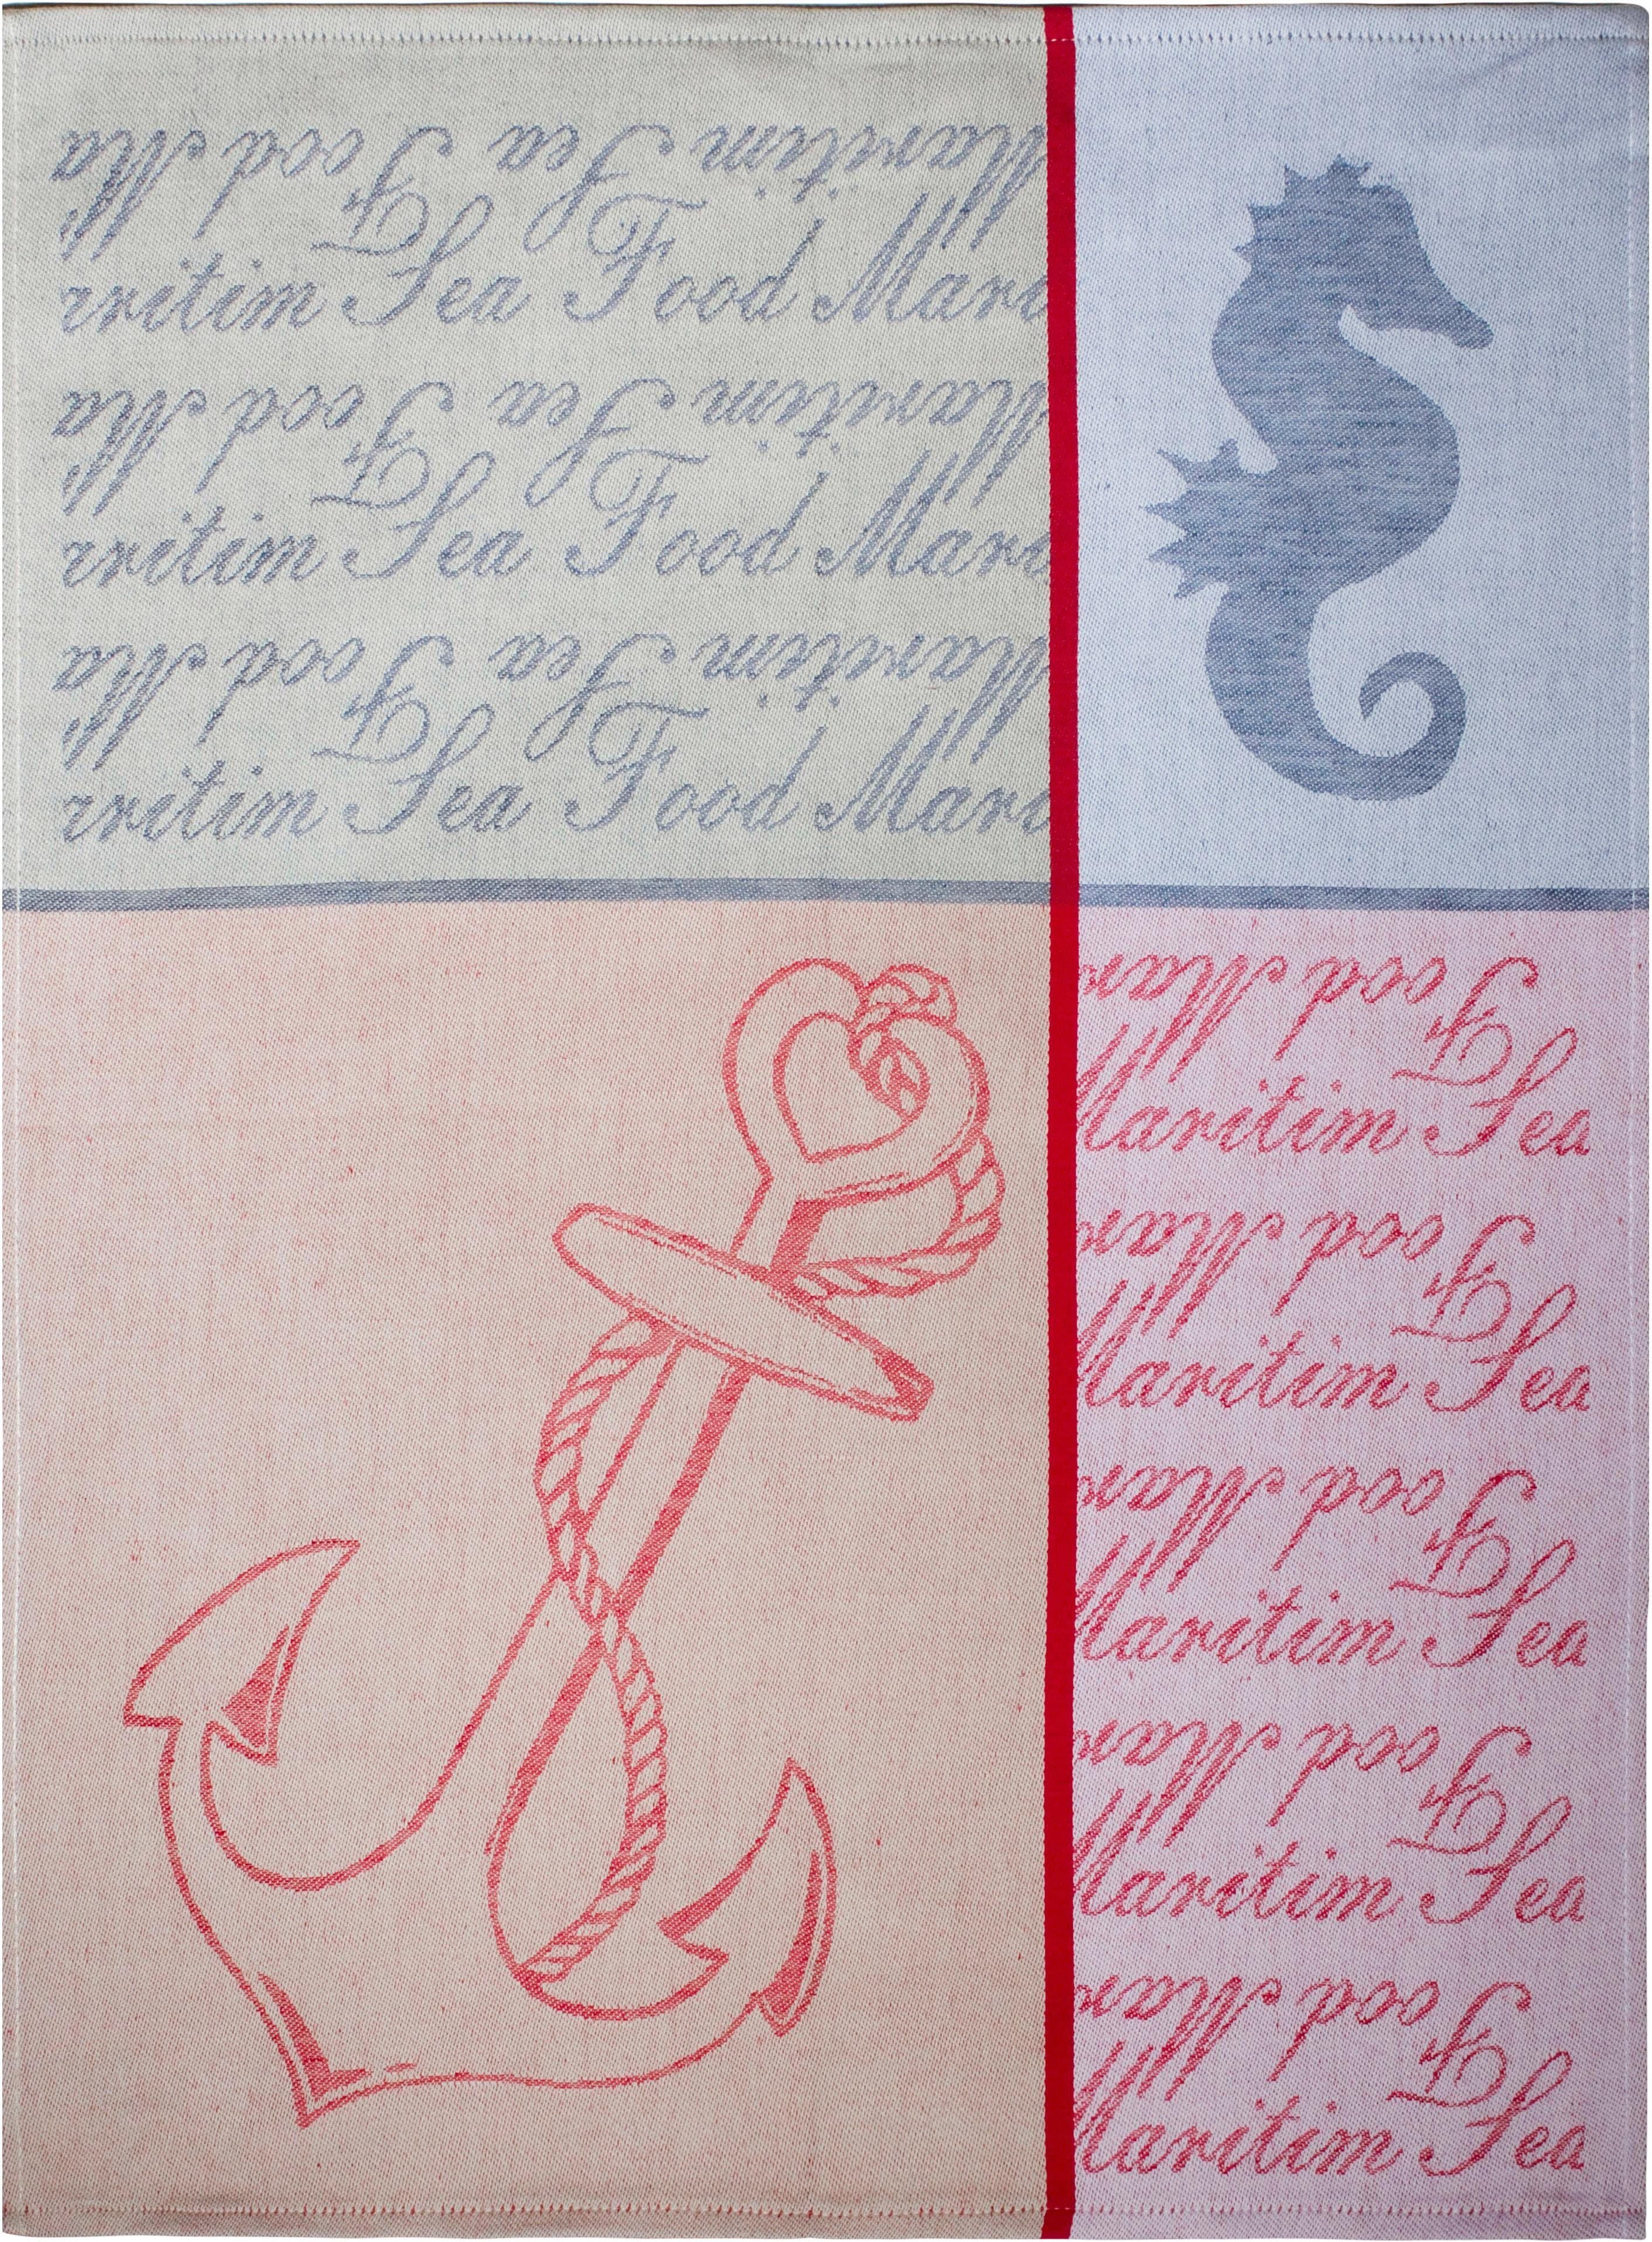 Maritim Sea Food Ma
ritim Sea Food Mari
Maritim Sea Food Ma
ritim Sea Food Mari
Maritim Sea Food Ma
ritim Sea Food Mari
Food Mar
Maritim Sea
Food Mar
Maritim Sea
Food Mar
Maritim Sea
Food Mar
Maritim Sea
Food Mar
Maritim Sea